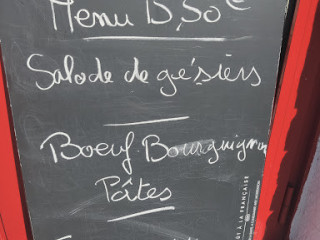 Menu 15,50€
Salade de gésiers
Boeuf Bourguignon
Pâtes
À LA FRANÇAISE